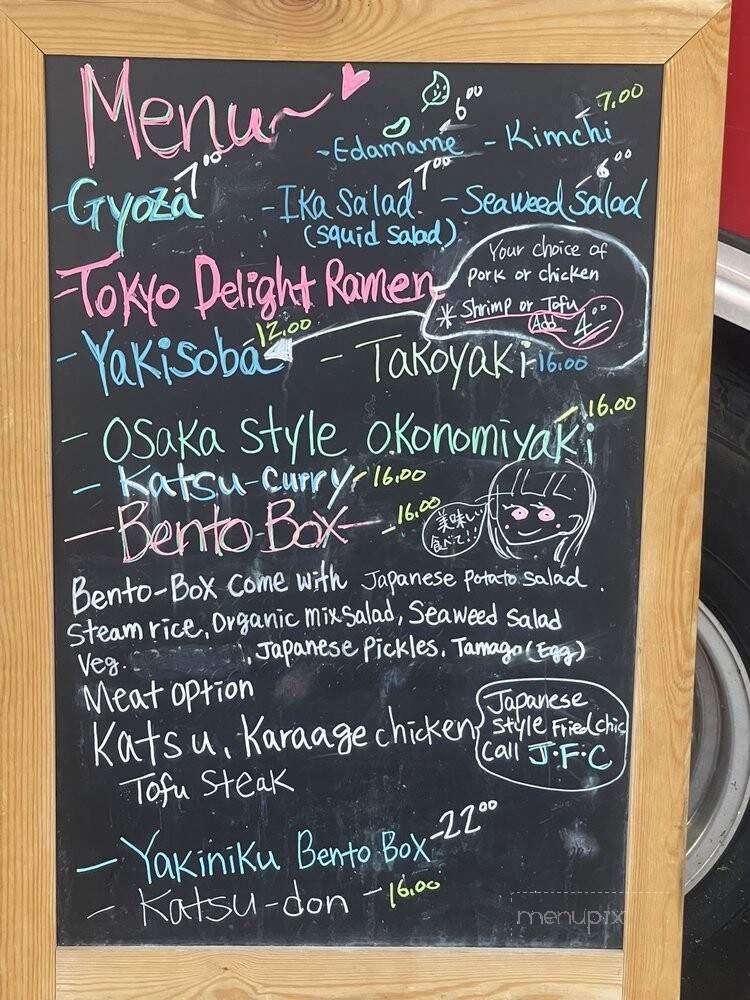 Menu
6.00
7.00
-Edamame - Kimchi
7.00
7.00
6.00
-Gyoza -Ika Salad -Seaweed Salad
(squid salad)
-Tokyo Delight Ramen
Your choice of
pork or chicken
* Shrimp or Tofu
Add 4.00
12.00
- Yakisoba - Takoyaki-16.00
16.00
- Osaka style okonomiyaki
- Katsu-curry-16.00
- Bento Box - 16.00
美味しい
食べて!!
Bento-Box come with Japanese potato salad.
Steam rice, Organic mix salad, Seaweed salad
Veg. , Japanese Pickles, Tamago (Egg)
Meat option
Katsu, Karaage chicken
Japanese
style Fried Chic
call J.F.C
Tofu Steak
- Yakiniku Bento Box -22.00
- Katsu-don - 16.00
menupix